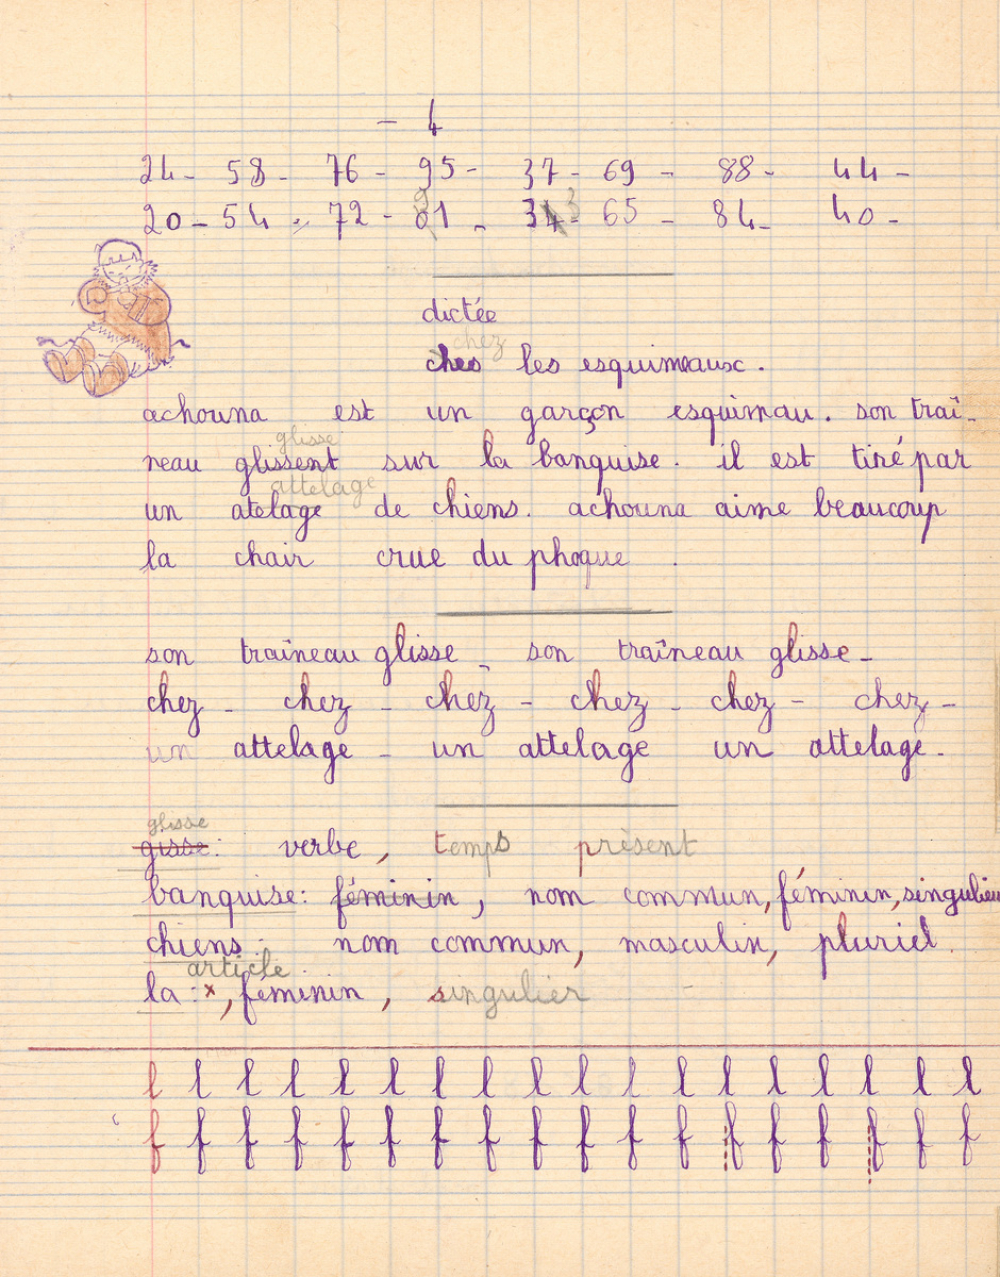 - 4
24 - 58 - 76 - 95 - 37 - 69 - 88 - 44 -
20 - 54 - 72 - 91 - 33 - 65 - 84 - 40 -
dictée
chez
ches les esquimeaux.
achouna est un garçon esquimau. son traî-
glisse
neau glissent sur la banquise. il est tiré par
attelage
un atelage de chiens. achouna aime beaucoup
la chair crue du phoque.
son traîneau glisse - son traîneau glisse -
chez - chez - chez - chez - chez - chez -
un attelage - un attelage un attelage.
glisse
gisse: verbe, temps présent
banquise: féminin, nom commun, féminin, singulier
chiens: nom commun, masculin, pluriel.
article
la : x, féminin, singulier
l l l l l l l l l l l l l l l l l l
f f f f f f f f f f f f f f f f f f